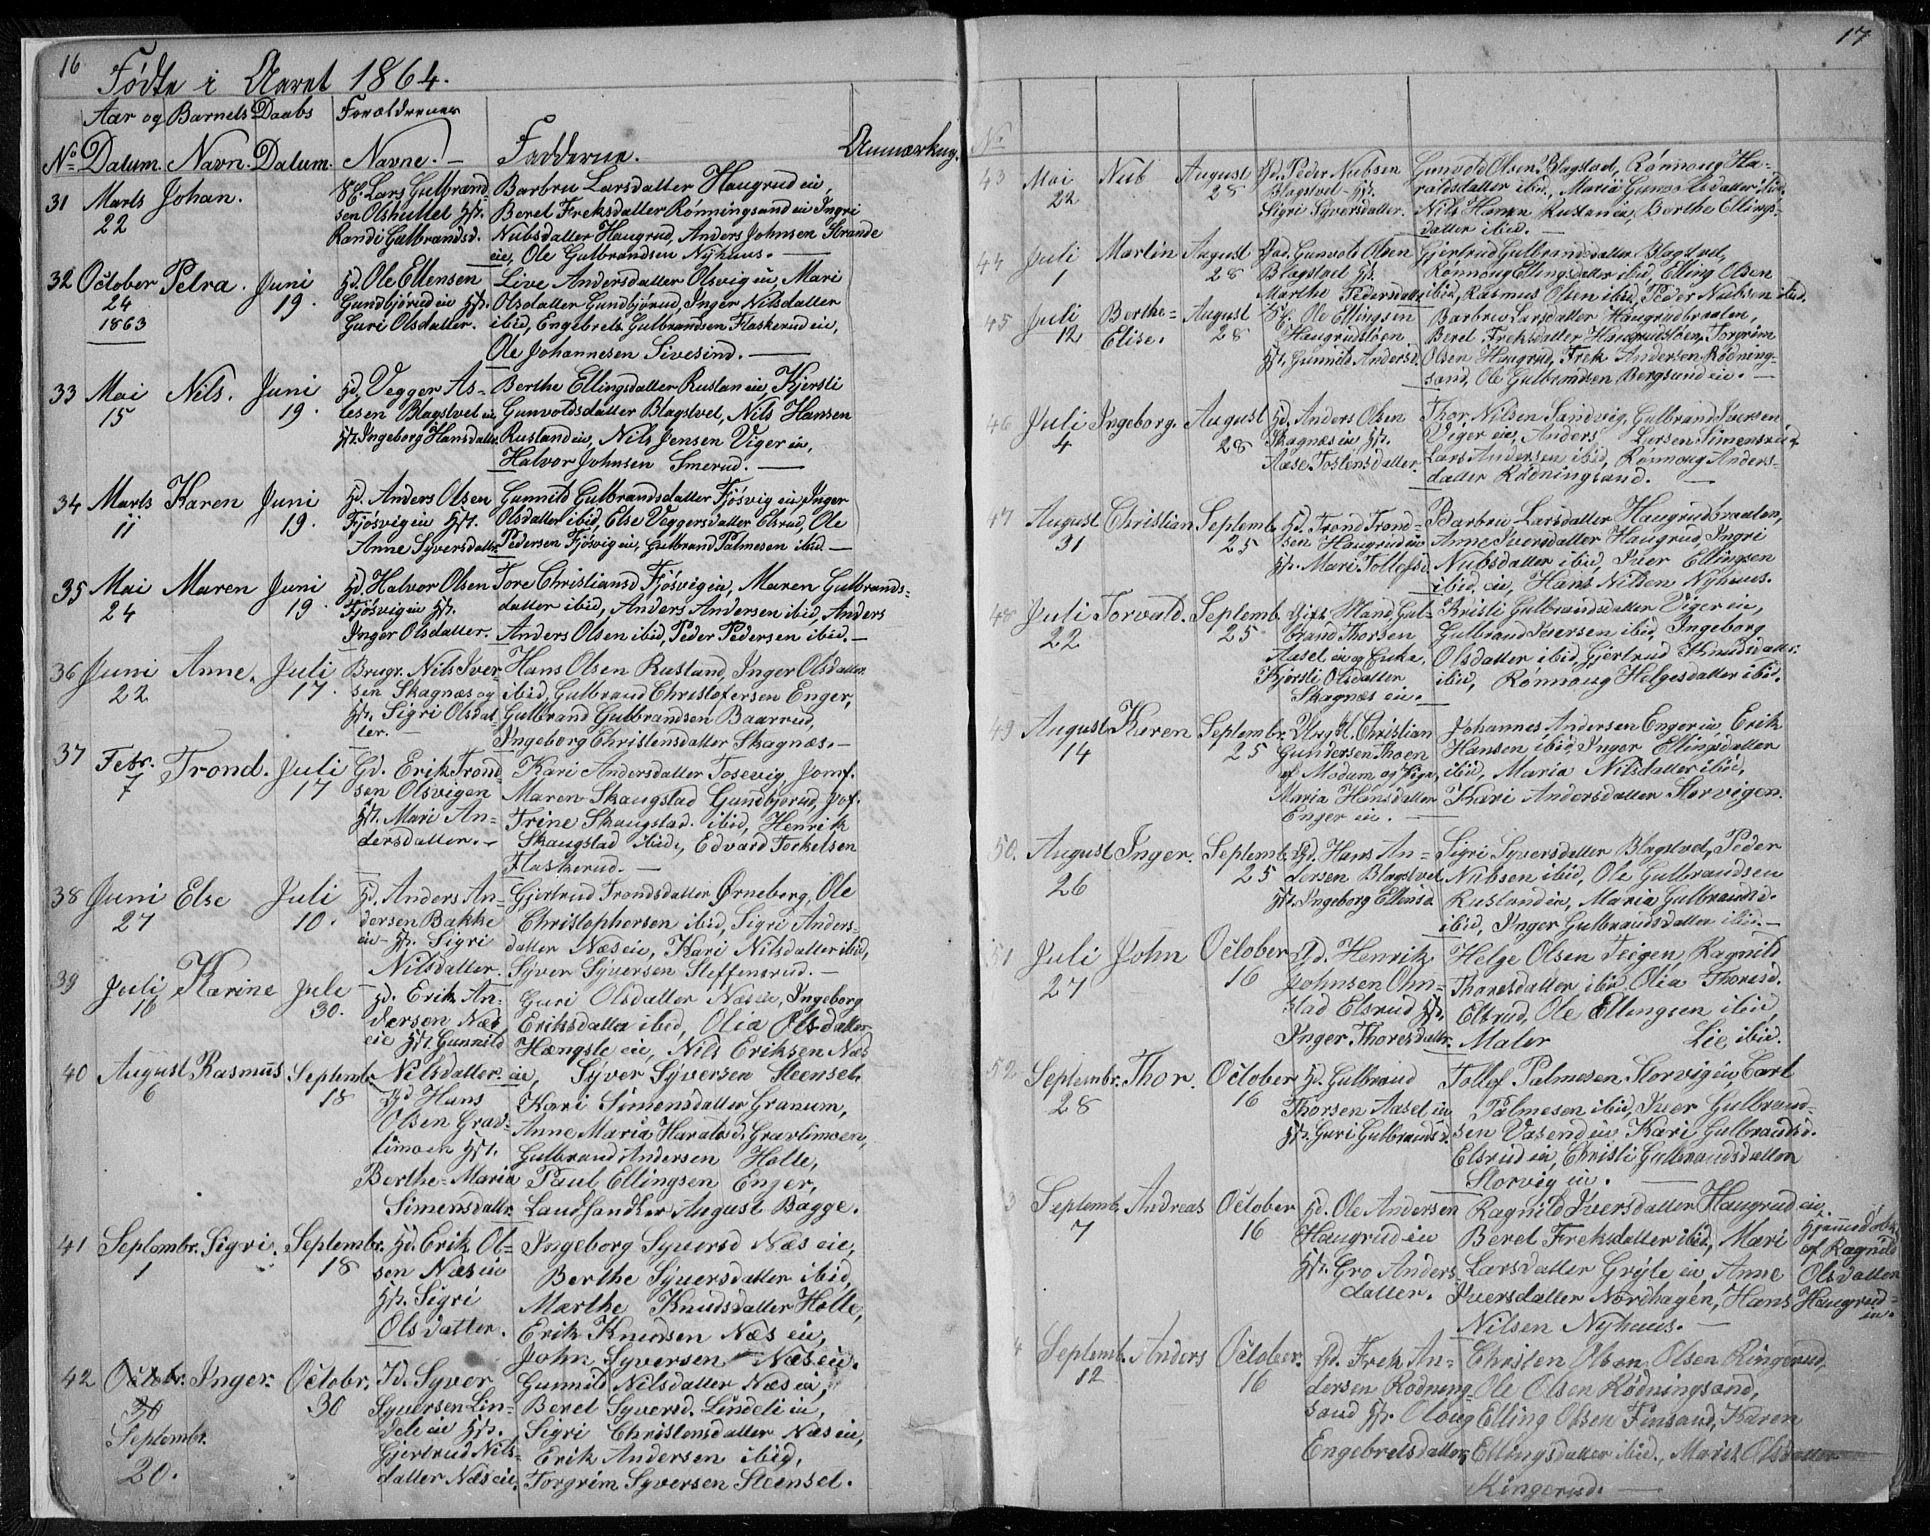 16
Fødte i Aaret 1864.
Aar og Barnets Daabs Forældrenes
No Datum. Navn. Datum. Navne. Fadderne. Anmærkng.
31 Marts 22 Johan.
Lars Gulbrand-
sen Olshuttet Hst.
Randi Gulbrandsd.
Barbru Larsdatter Haugrud eie,
Beret Freksdatter Rønningsand eie Ingri
Nubsdatter Haugrud, Anders Johnsen Strande
eie, Ole Gulbrandsen Nyhuus. —
32 October 24 1863 Petra. Juni 19.
Hd. Ole Ellensen
Gundbjørud eie Hst.
Guri Olsdatter.
Live Andersdatter Olsvig eie, Mari
Olsdatter Gundbjørud, Inger Nilsdatter
ibid, Engebret Gulbrandsen Flaskerud eie,
Ole Johannesen Sivesind. —
33 Mai 15 Nils. Juni 19.
Hd. Vegger As-
lesen Blagstvet eie
Hst. Ingeborg Hansdatter.
Berthe Ellingsdatter Rustan eie, Kjersti
Gunvoldsdatter Blagstvet, Nils Hansen
Rusland eie, Nils Jensen Viger eie,
Halvor Johnsen Smerud. —
34 Marts 11 Karen Juni 19.
Hd. Anders Olsen
Fjøsvig eie Hst.
Anne Syversdatter
Gunnild Gulbrandsdatter Fjøsvig eie, Inger
Olsdatter ibid, Else Veggersdatter Elsrud, Ole
Pedersen Fjøsvig eie, Gulbrand Palmesen ibid. —
35 Mai 24 Maren Juni 19.
Hd. Halvor Olsen
Fjøsvig eie Hst.
Inger Olsdatter.
Tore Christiansd Fjøsvig eie, Maren Gulbrands-
datter ibid, Anders Andersen ibid, Anders
Anders Olsen ibid, Peder Pedersen ibid. —
36 Juni 22 Anne. Juli 17.
Brugr. Nils Iver-
sen Skagnæs og
Hst. Sigri Olsdat-
ter. —
Hans Olsen Rusland, Inger Olsdatter
ibid, Gulbrand Christofersen Enger,
Gulbrand Gulbrandsen Baarrud,
Ingeborg Christensdatter Skagnæs. —
37 Febr. 7 Trond. Juli 17
Gd. Erik Trond-
sen Olsvigen
Hst. Mari An-
dersdatter. —
Kari Andersdatter Tosevig, Jomf.
Maren Skaugstad Gundbjørud, Jof.
Trine Skaugstad ibid, Henrik
Skaugstad ibid, Edvard Torkelsen
Flaskerud. —
38 Juni 27 Else Juli 10.
Hd. Anders An-
dersen Bakke
eie - Hst. Sigri
Nilsdatter.
Gjertrud Trondsdatter Ørneberg, Ole
Christophersen ibid, Sigri Anders-
datter Næs eie, Kari Nilsdatter ibid,
Syver Syversen Steffensrud. —
39 Juli 16 Karine Jule 30.
Hd. Erik An-
dersen Næs
eie Hst. Gunnild
Nilsdatter.
Guri Olsdatter Næs eie, Ingeborg
Eriksdatter ibid, Olia Olsdatter
Hængsle eie, Nils Eriksen Næs
eie, Syver Syversen Steenset.
40 August 6 Rasmus Septembr. 18
Hd Hans
Olsen Grav-
limoen Hst.
Berthe-Maria
Simensdatter.
Kari Simensdatter Granum,
Anne Maria Haralsd Gravlimoen,
Gulbrand Andersen Holle,
Paul Ellingsen Enger,
Landhandler August Bagge.
41 Septembr. 1 Sigri. Septembr. 18
Hd. Erik Ol-
sen Næs eie
Hst. Sigri
Olsdatter.
Ingeborg Syversd Næs eie,
Berthe Syversdatter ibid,
Marthe Knudsdatter Holle,
Erik Knudsen Næs eie,
John Syversen Næs eie.
42 Octobr. 30 Septembr. 20. Inger. Octobr. 30
Id. Syver
Syversen Lin-
deli eie Hst.
Gjertrud Nils-
datter Næs eie
Gunnild Nilsdatter Næs eie,
Beret Syversd. Lindeli eie,
Sigri Christensdatter Næs eie,
Erik Andersen ibid,
Torgrim Syversen Steenset.
17
No
43 Mai 22 Nub August 28
Gd. Peder Nubsen
Blagstvet Hst.
Sigri Syversdatter.
Gunvold Olsen Blagstad, Rønnoug Ha-
raldsdatter ibid, Maria Gunvoldsdatter ibid,
Nils Hansen Rustan eie, Berthe Ellings-
datter ibid. —
44 Juli 1 Martin August 28
Gd. Gunvold Olsen
Blagstvet Hst.
Marthe Pedersdatter
Gjertrud Gulbrandsdatter Blagstvet,
Rønnoug Ellingsdatter ibid, Elling Olsen
ibid, Rasmus Olsen ibid, Peder Nubsen ibid.
45 Juli 12 Berthe-Elise. August 28
Ole Ellingsen
Haugrudsløen
Hst. Gunnild Andersd.
Barbru Larsdatter Haugrudbraaten,
Beret Freksdatter Haugrudsløen, Torgrim
Olsen Haugrud, Frek Andersen Rødning-
sand, Ole Gulbrandsen Bergsund eie. —
46 Juli 4 Ingeborg. August 28
Hd. Anders Olsen
Skagnæs eie Hst.
Aase Tostensdatter.
Thor Nilsen Sandvig, Gulbrand Iversen
Viger eie, Anders Larsen Simensrud,
Lars Andersen ibid, Rønnoug Anders-
datter Rødningsand. —
47 August 31 Christian Septemb. 25
Hd. Trond Trond-
sen Haugrud eie
Hst. Mari Tollefsd
Barbru Larsdatter Haugrudbraaten,
Anne Iversdatter Haugrud, Ingri
Nubsdatter ibid, Iver Ellingsen
ibid eie, Hans Nilsen Nyhuus.
48 Juli 22 Torvald. Septemb. 25
Gift Mand Gul-
brand Thorsen
Aasel eie og Enke
Kjersti Olsdatter
Skagnæs eie. —
Kristi Gulbrandsdatter Viger eie,
Gulbrand Iversen ibid, Ingeborg
Olsdatter ibid, Gjertrud Knudsdatter
ibid, Rønnoug Helgesdatter ibid.
49 August 14 Karen Septembr. 25
Ung K. Christian
Gundersen Thoen
af Modum og Pige
Maria Hansdatter
Enger eie. —
Johannes Andersen Enger eie Erik
Hansen ibid, Inger Ellingsdatter
ibid, Maria Nilsdatter ibid,
Kari Andersdatter Storvigen.
50. August 26 Inger. Septemb. 25
Gd. Hans An-
dersen Blagstvet
Hst. Ingeborg Ellensd
Sigri Syversdatter Blagstvet, Peder
Nubsen ibid, Ole Gulbrandsen
Rusland eie, Maria Gulbrandsd.
ibid, Inger Gulbrandsdatter ibid. —
51 Juli 27 John October 16
Gd. Henrik
Johnsen Ohn-
stad Elsrud Hst.
Inger Thoresdatter.
Helge Olsen Tiegen, Ragnild
Thoresdatter ibid, Olia Thoresd.
Elsrud, Ole Ellingsen ibid,
Maler Lie ibid.
52 Septembr. 28 Thor. October 16
Hd. Gulbrand
Thorsen Aasel eie
Hst. Guri Gulbrandsd.
Tollef Palmesen Storvig eie, Carl
Palmesen ibid, Iver Gulbrand-
sen Vasend eie Kari Gulbrandsd.
Elsrud eie, Christi Gulbrandsdatter
Storvig eie. —
3 Septemb. 7 Andreas October 16
Hd. Ole Andersen
Haugrud eie
Hst. Gro Anders
datter.
Ragnild Iversdatter Haugrud eie,
Beret Freksdatter ibid, Mari
Larsdatter Gryte eie, Anne
Iversdatter Nordhagen, Hans
Nilsen Nyhuus. —
Hjemmedøbt
af Ragnild
Olsdatter
Haugrud-
eie.
4 Septemb. 12 Anders October. 16
Gd. Frek An-
dersen Rodning-
sand Hst. Oloug
Engebretsdatter,
Christen Olsen Olsen Ringerud,
Ole Olsen Rødningsand,
Elling Olsen Finsand, Karen
Ellingsdatter ibid., Marit Olsdatter
Ringerud. —